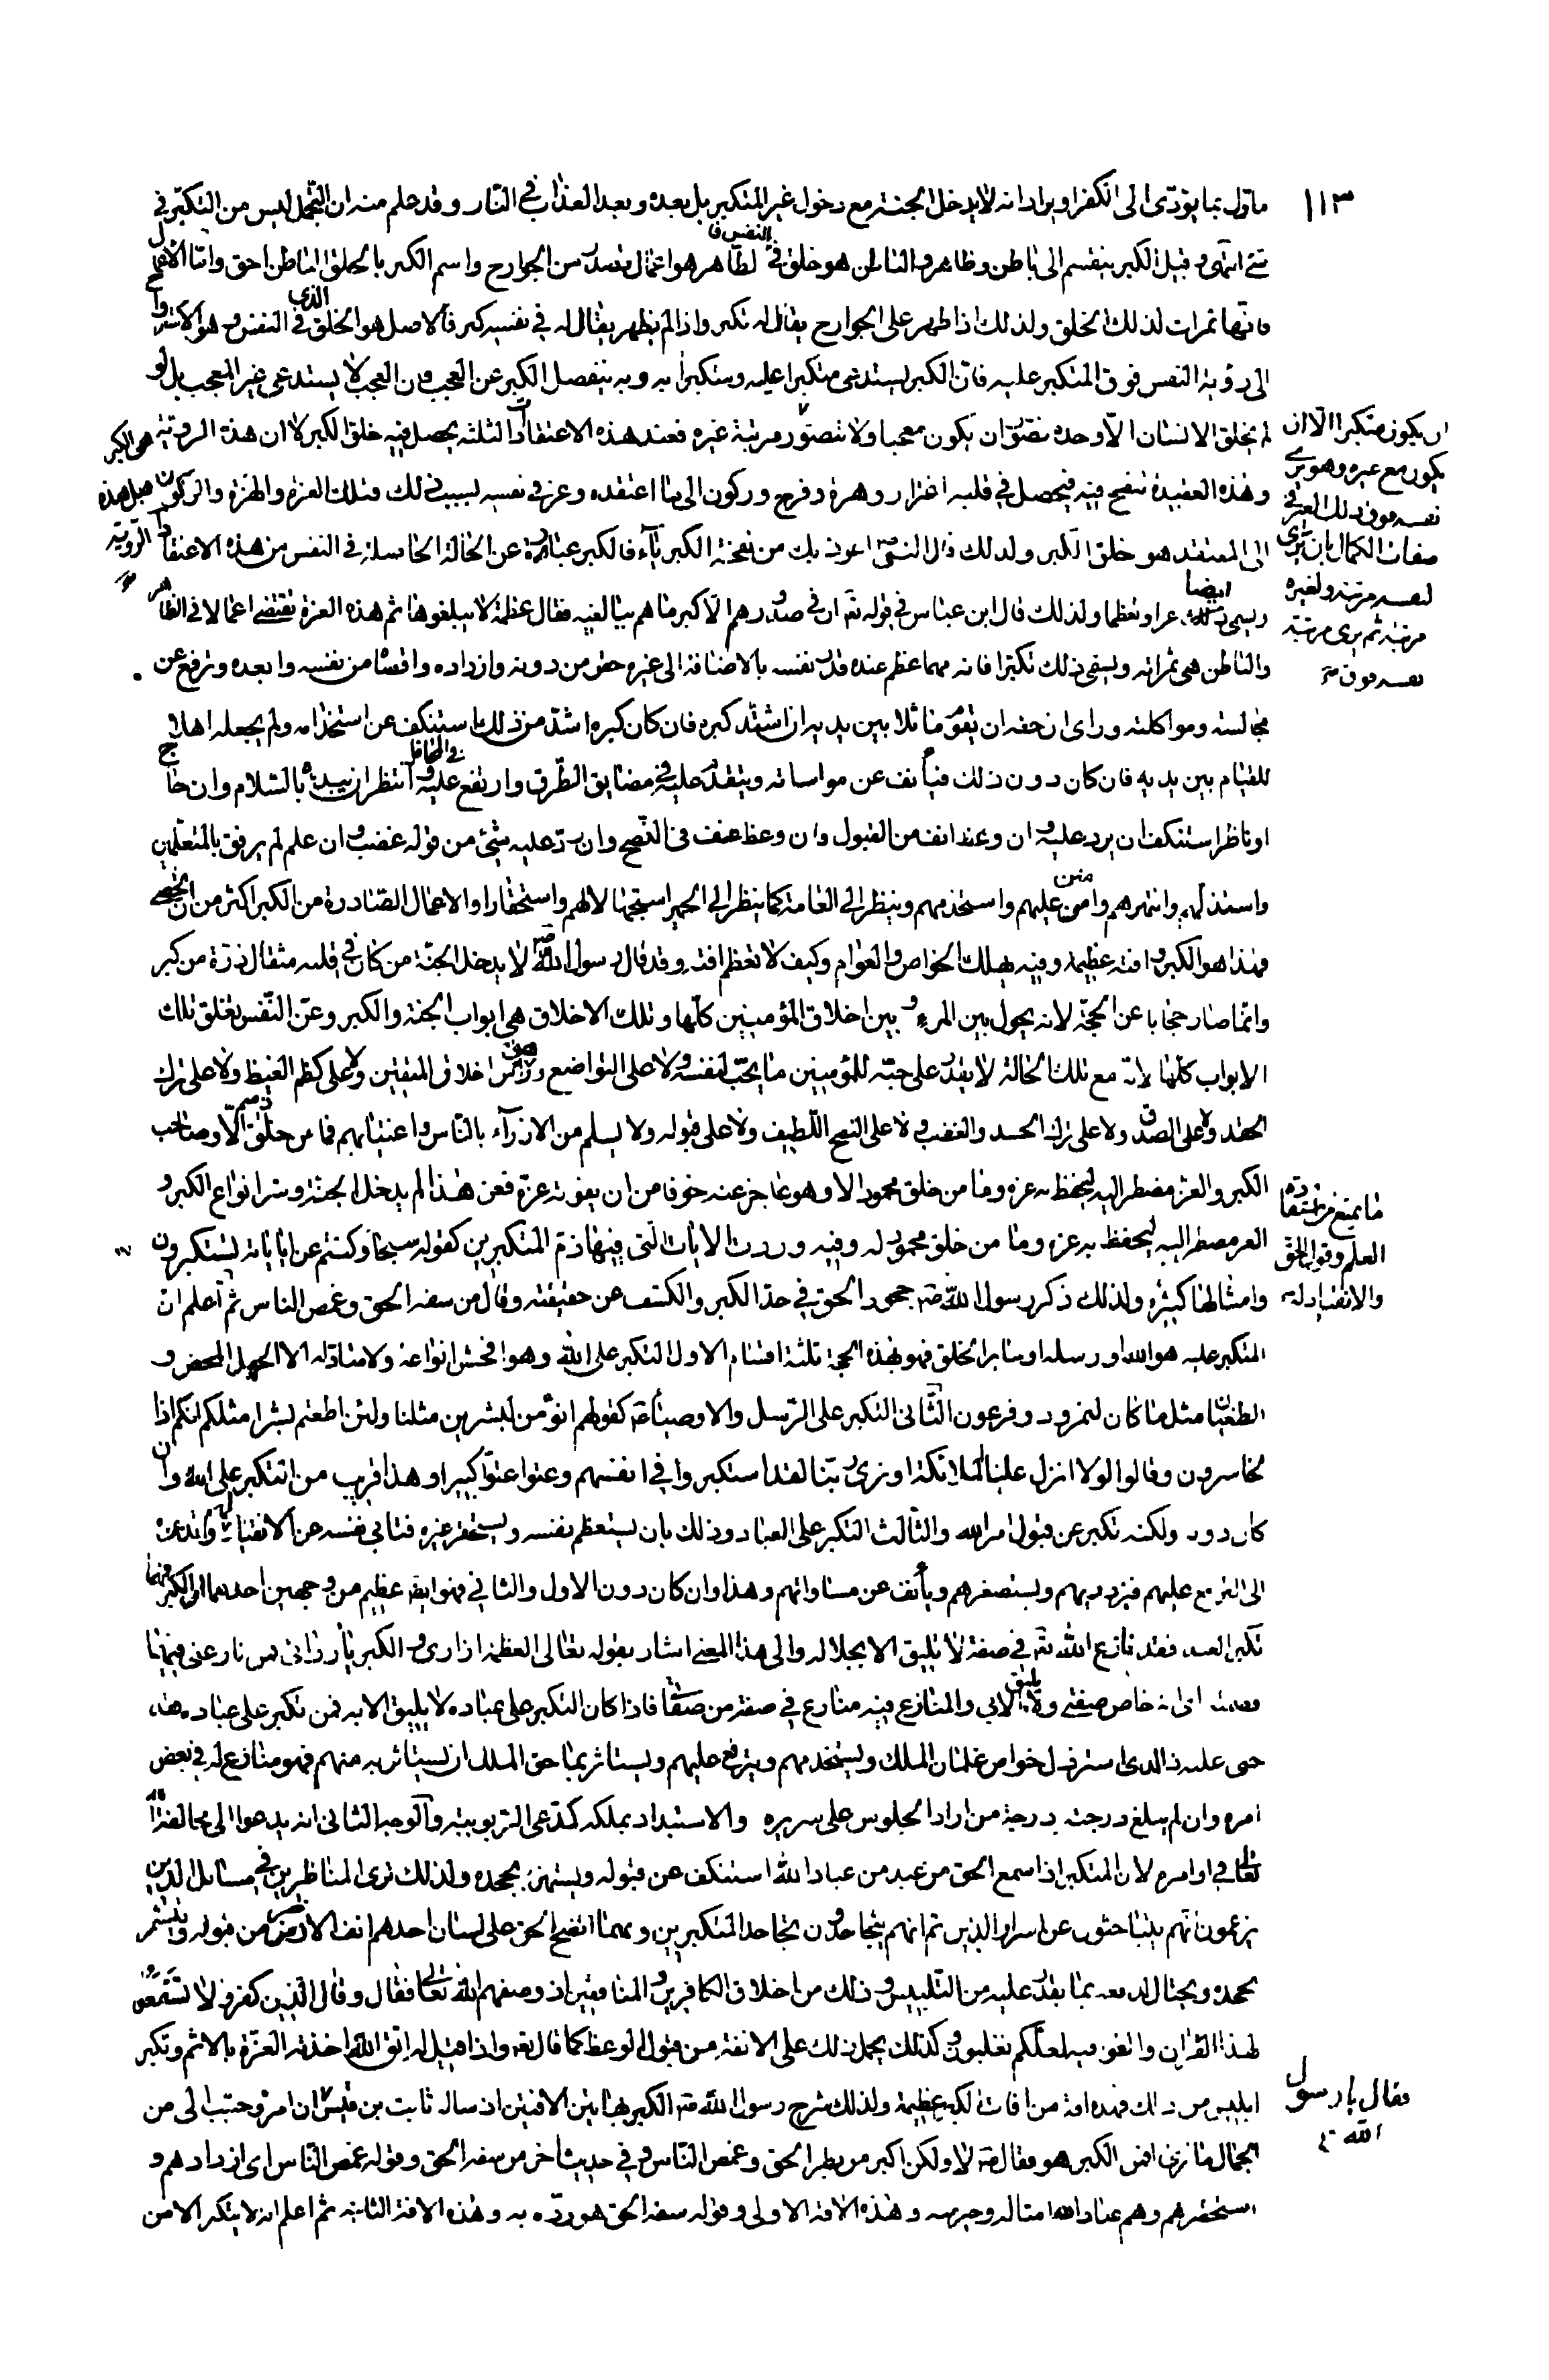 ١١٣
ماؤل بما يؤدى الى الكفر او يراد انه لا يدخل الجنة مع دخول غير المتكبر بل بعده وبعد العذاب في النار وقد علم منه ان التجمل ليس من التكبر في
شئ انتهى وقيل الكبر ينقسم الى باطن وظاهر والباطن هو خلق في النفس والظاهر هو اعمال تصدر من الجوارح واسم الكبر بالخلق الباطن احق واما الاعمال
فانها ثمرات لذلك الخلق ولذلك اذا ظهر على الجوارح يقال له تكبر واذا لم يظهر يقال له في نفسه كبر فالاصل هو الخلق الذي في النفس وهو الاسترواح
الى رؤية النفس فوق المتكبر عليه فان الكبر يستدعى متكبرا عليه ومتكبرا به وبه ينفصل الكبر عن العجب فان العجب لا يستدعى غير المعجب بل لو
لم يخلق الانسان الا وحده تصور ان يكون معجبا ولا يتصور
ان يكون متكبرا الا ان
يكون مع غيره وهو يرى
نفسه فوق ذلك الغير في
صفات الكمال بان يرى
لنفسه مرتبة ولغيره
مرتبة ثم يرى مرتبة
نفسه فوق
مرتبة غيره فعند هذه الاعتقادات الثلثة يحصل فيه خلق الكبر لا ان هذه الرؤية هي الكبر
بل هذه الرؤية
وهذه العقيدة تنفح فيه فيحصل في قلبه اغترار وهزة وفرح وركون الى ما اعتقده وعز في نفسه بسبب ذلك فتلك العزة والهزة والركون
الى المعتقد هو خلق الكبر ولذلك قال النبي اعوذ بك من نفخة الكبرياء فالكبر عبارة عن الحالة الحاصلة في النفس من هذه الاعتقادات
ويسمى ايضا عزا وتعظما ولذلك قال ابن عباس في قوله تع ان في صدورهم الا كبر ما هم ببالغيه فقال عظمة لا يبلغوها ثم هذه العزة تقتضى اعمالا في الظاهر
والباطن هي ثمراته ويسمى ذلك تكبرا فانه مهما عظم عنده قدر نفسه بالاضافة الى غيره حقر من دونه وازداده واقصاه من نفسه وابعده وترفع عن
مجالسته ومواكلته وراى ان حقه ان يقوم ماثلا بين يديه ان اشتد كبره فان كان كبره اشد من ذلك استنكف عن استخدامه ولم يجعله اهلا
للقيام بين يديه فان كان دون ذلك فيأنف عن مواساته ويتقدم عليه في مضايق الطرق وارتفع عليه في المحافل وانتظر ان يبدءه بالسلام وان حاج
او ناظر استنكف ان يرد عليه وان وعظ انف من القبول وان وعظ عنف في النصح وان رد عليه شئ من قوله غضب وان علم لم يرفق بالمتعلمين
واستذلهم وانتهرهم وامتن عليهم واستخدمهم وينظر الى العامة كما ينظر الى الحمير استجهالا لهم واستحقارا والاعمال الصادرة من الكبر اكثر من ان تحصى
فهذا هو الكبر وافته عظيمة وفيه يهلك الخواص والعوام وكيف لا تعظم افته وقد قال رسول الله ص لا يدخل الجنة من كان في قلبه مثقال ذرة من كبر
وانما صار حجابا عن الجنة لانه يحول بين المرء وبين اخلاق المؤمنين كلها وتلك الاخلاق هي ابواب الجنة والكبر وعز النفس تغلق تلك
الابواب كلها لانه مع تلك الحالة لا يقدر على حبه للمؤمنين ما يحب لنفسه ولا على التواضع وهو راس اخلاق المتقين ولا على كظم الغيظ ولا على ترك
الحقد ولا على الصدق ولا على ترك الحسد والغضب ولا على النصح اللطيف ولا على قبوله ولا يسلم من الازراء بالناس واغتيابهم فما من خلق ذميم الا وصاحب
الكبر والعز مضطر اليه ليحفظ به عزه وما من خلق محمود الا وهو عاجز عنه خوفا من ان يفوته عزه فعن هذا لم يدخل الجنة وشر انواع الكبر
ما يمنع من استفادة
العلم وقبول الحق
والانقياد له
العز مضطر اليه ليحفظ به عزه وما من خلق محمود له وفيه وردت الايات التى فيها ذم المتكبرين كقوله سبحانه وكنتم عن اياته تستكبرون
وامثالها كثيرة ولذلك ذكر رسول الله ص جحود الحق في حد الكبر والكشف عن حقيقته وقال من سفه الحق وغمص الناس ثم اعلم ان
المتكبر عليه هو الله او رسله او ساير الخلق فهو بهذه الجهة ثلثة اقسام الاول التكبر على الله وهو افحش انواعه ولا مثار له الا الجهل المحض و
الطغيان مثل ما كان لنمرود وفرعون الثاني التكبر على الرسل والاوصياء ع كقولهم انؤمن لبشرين مثلنا ولئن اطعتم بشرا مثلكم انكم اذا
لخاسرون وقالوا لولا انزل علينا الملائكة او نرى ربنا لقد استكبروا في انفسهم وعتوا عتوا كبيرا وهذا قريب من التكبر على الله وان
كان دونه ولكنه تكبر عن قبول امر الله والثالث التكبر على العباد وذلك بان يستعظم نفسه ويستحقر غيره فتابى نفسه عن الانقياد لهم وتدعوه
الى الترفع عليهم فيزدريهم ويستصغرهم ويأنف عن مساواتهم وهذا وان كان دون الاول والثاني فهو ايضا عظيم من وجهين احدهما ان الكبر
تكبر العبد فقد نازع الله تع في صفة لا يليق الا بجلاله والى هذا المعنى اشار بقوله تعالى العظمة ازارى والكبرياء ردائى فمن نازعنى فيهما
قصمته اى انه خاص صفتى ولا يليق الا بي والمنازع فيه منازع في صفة من صفاتي فاذا كان التكبر على عباده لا يليق الا به فمن تكبر على عباده فقد
جنى عليه اذ الذى استرذل خواص غلمان الملك ويستخدمهم ويترفع عليهم ويستاثر بما حق الملك ان يستاثر به منهم فهو منازع له في بعض
امره وان لم يبلغ درجته درجة من اراد الجلوس على سريره والاستبداد بملكه كمدعى الربوبية والوجه الثانى انه يدعوا الى مخالفة الله
تعالى في اوامره لان المتكبر اذا سمع الحق من عبد من عباد الله استنكف عن قبوله ويشمئز بجحده ولذلك ترى المناظرين في مسائل الدين
يزعمون انهم يتباحثون عن اسرار الدين ثم انهم يتجاحدون تجاحد المتكبرين ومهما اتضح الحق على لسان احدهم انف الاخر من قبوله ويتشمر
بجحده ويحتال لدفعه بما يقدر عليه من التلبيس وذلك من اخلاق الكافرين والمنافقين اذ وصفهم الله تعالى فقال وقال الذين كفروا لا تسمعوا
لهذا القران والغوا فيه لعلكم تغلبون وكذلك يحمل ذلك على الانفة من قبول الوعظ كما قال تع واذا قيل له اتق الله اخذته العزة بالاثم وتكبر
ابليس من ذلك فهذه افة من افات الكبر عظيمة ولذلك شرح رسول الله ص الكبر بهاتين الافتين اذ ساله ثابت بن قيس
فقال يا رسول
الله
ان امرؤ حبب الى من
الجمال ما ترى افمن الكبر هو فقال ص لا ولكن الكبر من بطر الحق وغمص الناس وفي حديث اخر من سفه الحق وقوله غمص الناس اى ازدراهم و
استحقرهم وهم عباد الله امثاله وخير منه وهذه الافة الاولى وقوله سفه الحق هو رده به وهذه الافة الثانية ثم اعلم انه لا يتكبر الا من